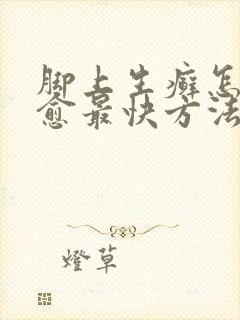 脚上生癣怎
愈最快方法
燈草